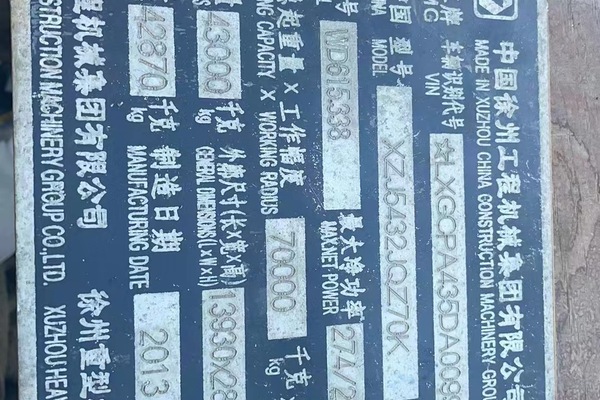 中国徐州工程机械集团有限公司
MADE IN XUZHOU CHINA CONSTRUCTION MACHINERY GROU
牌 车辆识别代号 ☆LXGCPA435DA009
MG VIN
国 型号 XZJ5432JQZ70K
INA MODEL
号 WD615.338 最大净功率 274/2
MAX.NET POWER
起重量 x 工作幅度 70000 千克
NG CAPACITY X WORKING RADIUS kg
43000 千克 外廓尺寸(长x宽x高) 13930X28
kg GENERAL DIMENSIONS (LxWxH)
42870 千克 制造日期 2013
kg MANUFACTURING DATE
程机械集团有限公司 徐州重型
STRUCTION MACHINERY GROUP CO.,LTD. XUZHOU HEA